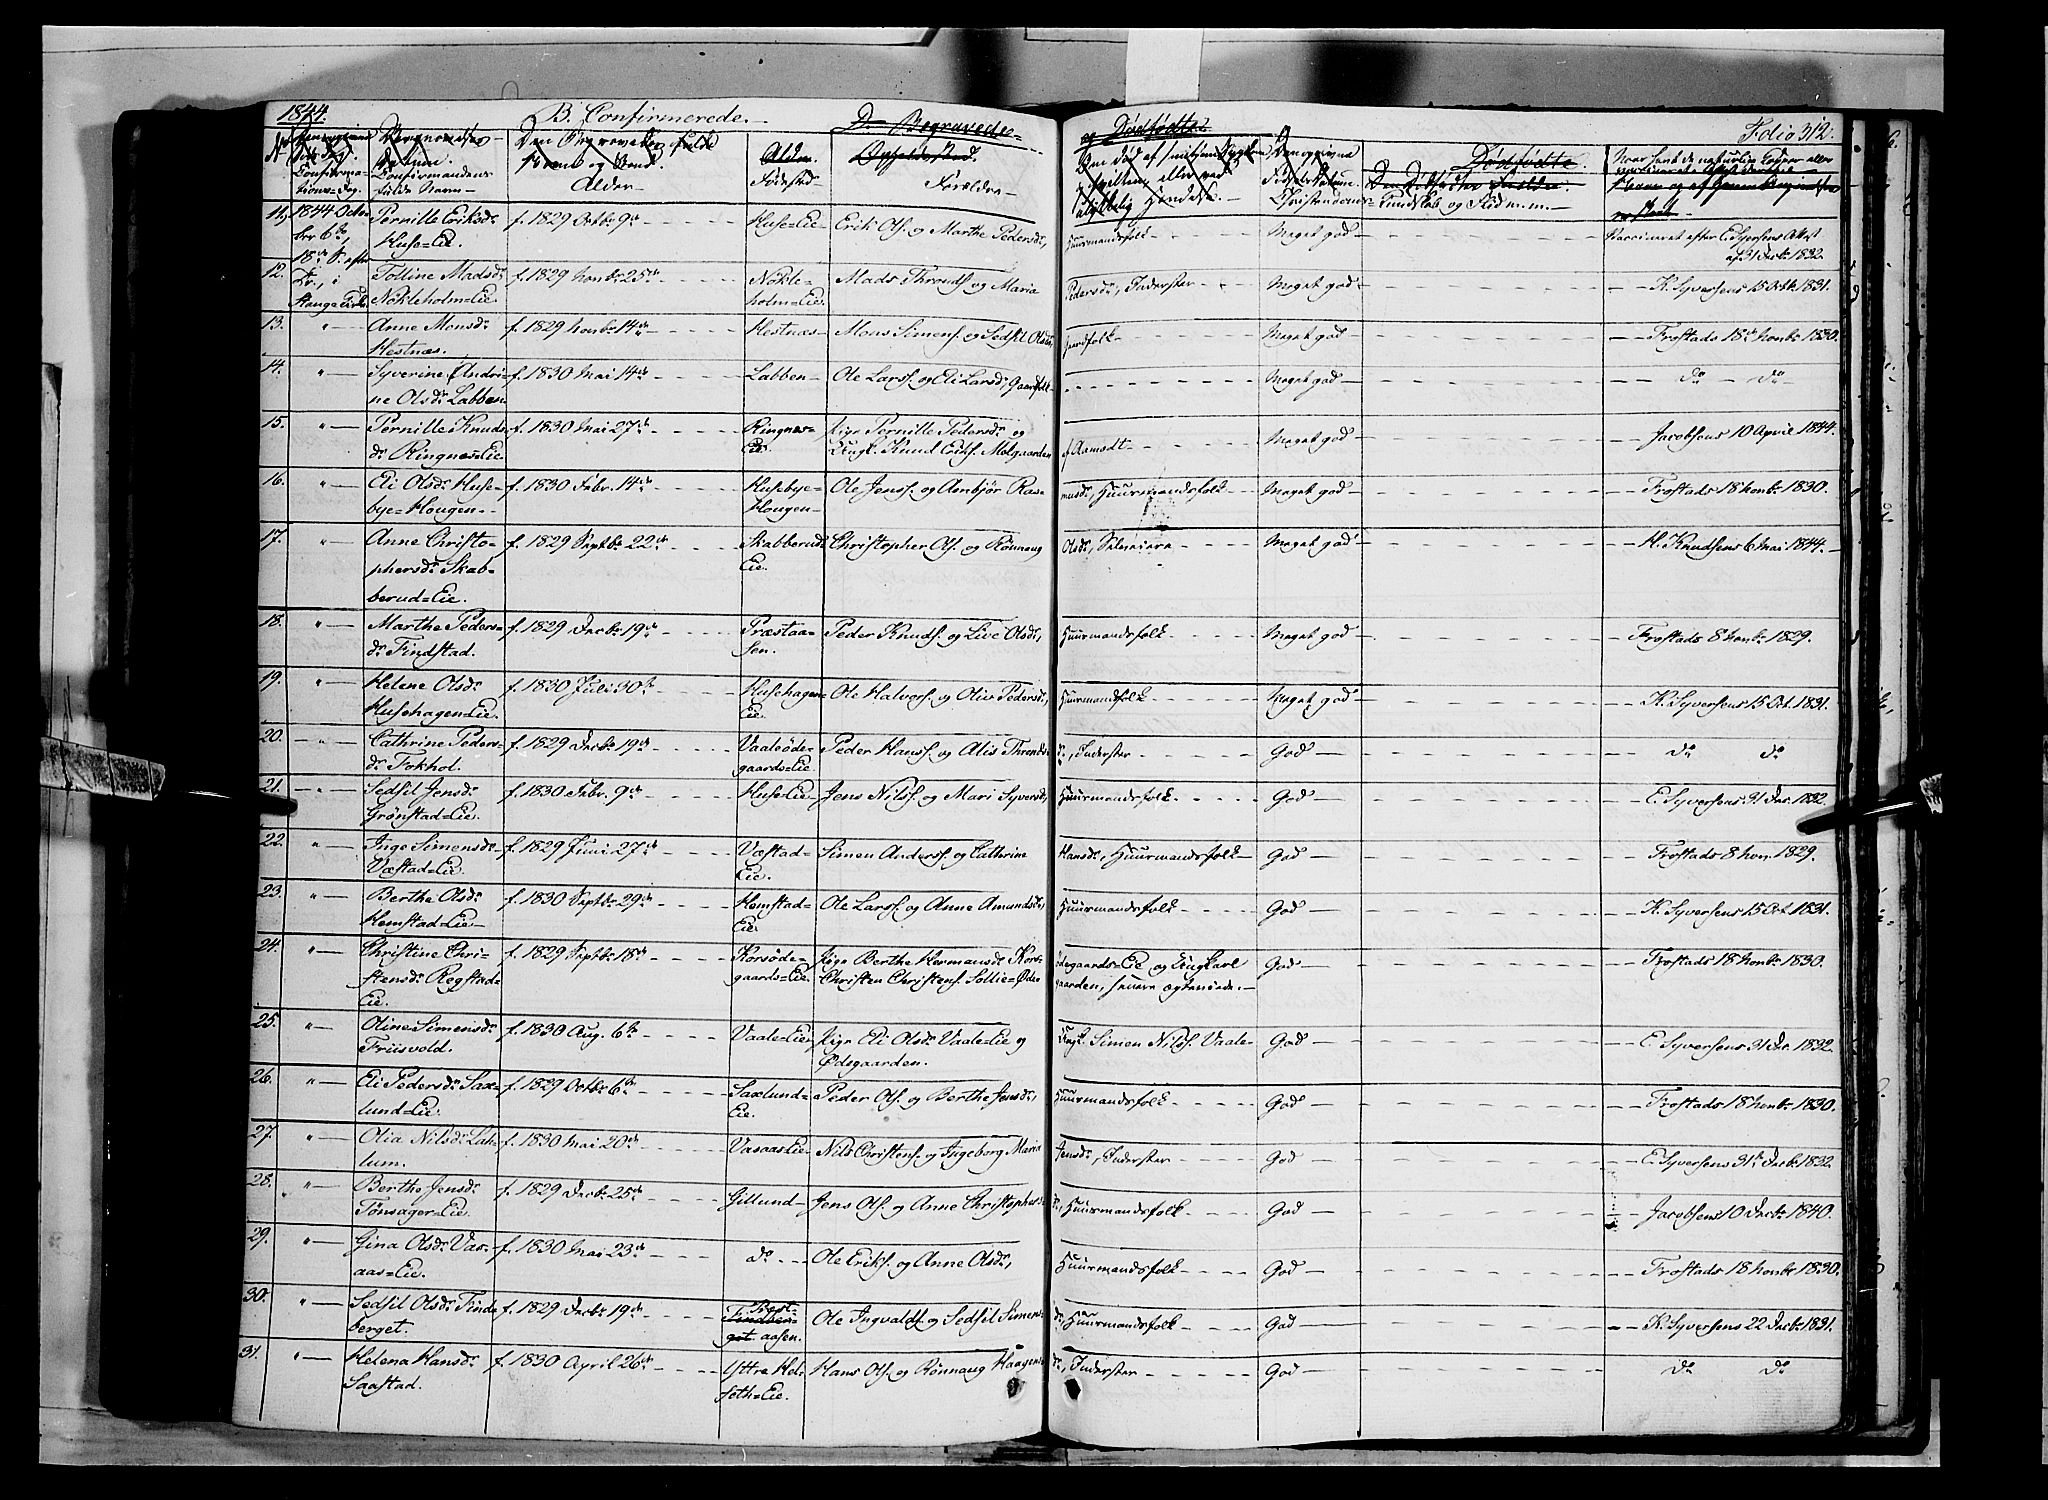 1844. B. Confirmerede. D. Begravede og Dødfødte. Folio 312.
Confirmations-Dag. Confirmandens fulde Navn Alder Fødested Forældre Christendoms-Kundskab og Flid m.m.
11, 1844 October 6te, 18de S. efter Tr., i Stange Kirke Pernille Eriksdr Huse=Eie. f. 1829 Octbr 9de Huse=Eie Erik Ols. og Marthe Pedersdr, Huusmandsfolk Meget god Vaccineret efter E. Syversens Attest af 31 Decbr 1832.
12. Tolline Madsdr Nokleholm=Eie. f. 1829 Novbr 25de Nokleholm=Eie. Mads Thronds. og Maria Pedersdr, Inderster Meget god K. Syversens 15 Octb. 1831.
13. " Anne Monsdr Hestnæs. f. 1829 Novbr 14de Hestnæs Mons Simens. og Sedsil Olsdr, Gaardfolk Meget god Frostads 18de Novbr 1830.
14. " Syverine Andrine Olsdr Labben f. 1830 Mai 14de Labben Ole Larss. og Eli Larsdr, Gaardfolk Meget god do do
15. " Pernille Knudsdr Ringnæs=Eie. f. 1830 Mai 27de Ringnæs=Eie. Pige Pernille Pedersdr og Ungk. Knud Eriks. Molgaarden f Aamodt Meget god Jacobsens 10 April 1844.
16. " Eli Olsdr Husebye=Hougen f. 1830 Febr. 14de Husebye=Hougen Ole Jenss. og Ambjør Rasmusdr, Huusmandsfolk Meget god Frostads 18 Novbr 1830.
17. " Anne Christophersdr Skabberud=Eie. f. 1829 Septbr 22de Skabberud=Eie. Christopher Ols. og Rönnaug Olsdr, Selveiere Meget god H. Knudsens 6 Mai 1844.
18. " Marthe Pedersdr Findstad. f. 1829 Decbr 19de Præstaasen. Peder Knuds. og Live Olsdr, Huusmandsfolk Meget god Frostads 8 Novbr 1829.
19. " Helene Olsdr Husehagen=Eie. f. 1830 Juli 30te Husehagen=Eie. Ole Halvors. og Oliv Pedersdr, Huusmandsfolk Meget god K. Syversens 15 Oct. 1831.
20. " Cathrine Pedersdr Fokhol. f. 1829 Decbr 19de Vaaleødegaards=Eie. Peder Hanss. og Alis Throndsdr, Inderster God do do
21. " Sedsil Jensdr Grönstad=Eie. f. 1830 Febr. 9de Huse=Eie Jens Nilss. og Mari Syversdr, Huusmandsfolk God E. Syversens 31 Dec. 1832.
22. " Inge Simensdr Væstad=Eie. f. 1829 Juni 27de Væstad=Eie. Simen Anderss. og Cathrine Hansdr, Huusmandsfolk God Frostads 8 Nov. 1829.
23. " Berthe Olsdr Hemstad=Eie f. 1830 Septbr 29de Hemstad=Eie. Ole Larss. og Anne Amundsdr, Huusmandsfolk God K. Syversens 15 Oct. 1831.
24. " Christine Christensdr Rogstad=Eie. f. 1829 Septbr 18de Korsødegaards=Eie. Pige Berthe Hermansdr Korsødegaards=Eie og Ungkarl Christen Christens. Sollie=Ødegaarden, senere ægteviede. God Frostads 18 Novbr 1830.
25. " Oline Simensdr Friisvold. f. 1830 Aug. 6te Vaale=Eie Pige Eli Olsdr Vaale=Eie og Ungk. Simen Nilss. Vaale-Ødegaarden. God E. Syversens 31 Dec. 1832.
26. " Eli Pedersdr Saxlund=Eie. f. 1829 Octbr 6te Saxlund=Eie. Peder Ols. og Berthe Jensdr, Huusmandsfolk God Frostads 18 Novbr 1830.
27. " Olia Nilsdr Lalum. f. 1830 Mai 20de Vasaas=Eie Nils Christens. og Ingeborg Maria Jensdr, Inderster God E. Syversens 31te Decbr 1832.
28. " Berthe Jensdr Tönsager=Eie. f. 1829 Decbr 25de Gillund Jens Ols. og Anne Christophersdr, Huusmandsfolk God Jacobsens 10 Decbr 1840.
29. " Gina Olsdr Vasaas=Eie. f. 1830 Mai 23de do Ole Eriks. og Anne Olsdr, Huusmandsfolk God Frostads 18 Novbr 1830.
30. " Sedsil Olsdr Findberget. f. 1829 Decbr 19de Findberget aasen. Ole Ingvalds. og Sedsil Simensdr, Huusmandsfolk God K. Syversens 22 Decbr 1831.
31. " Helena Hansdr Saastad. f. 1830 April 26de Yttre Helseth=Eie. Hans Ols. og Rönnaug Haagensdr, Inderster God do do